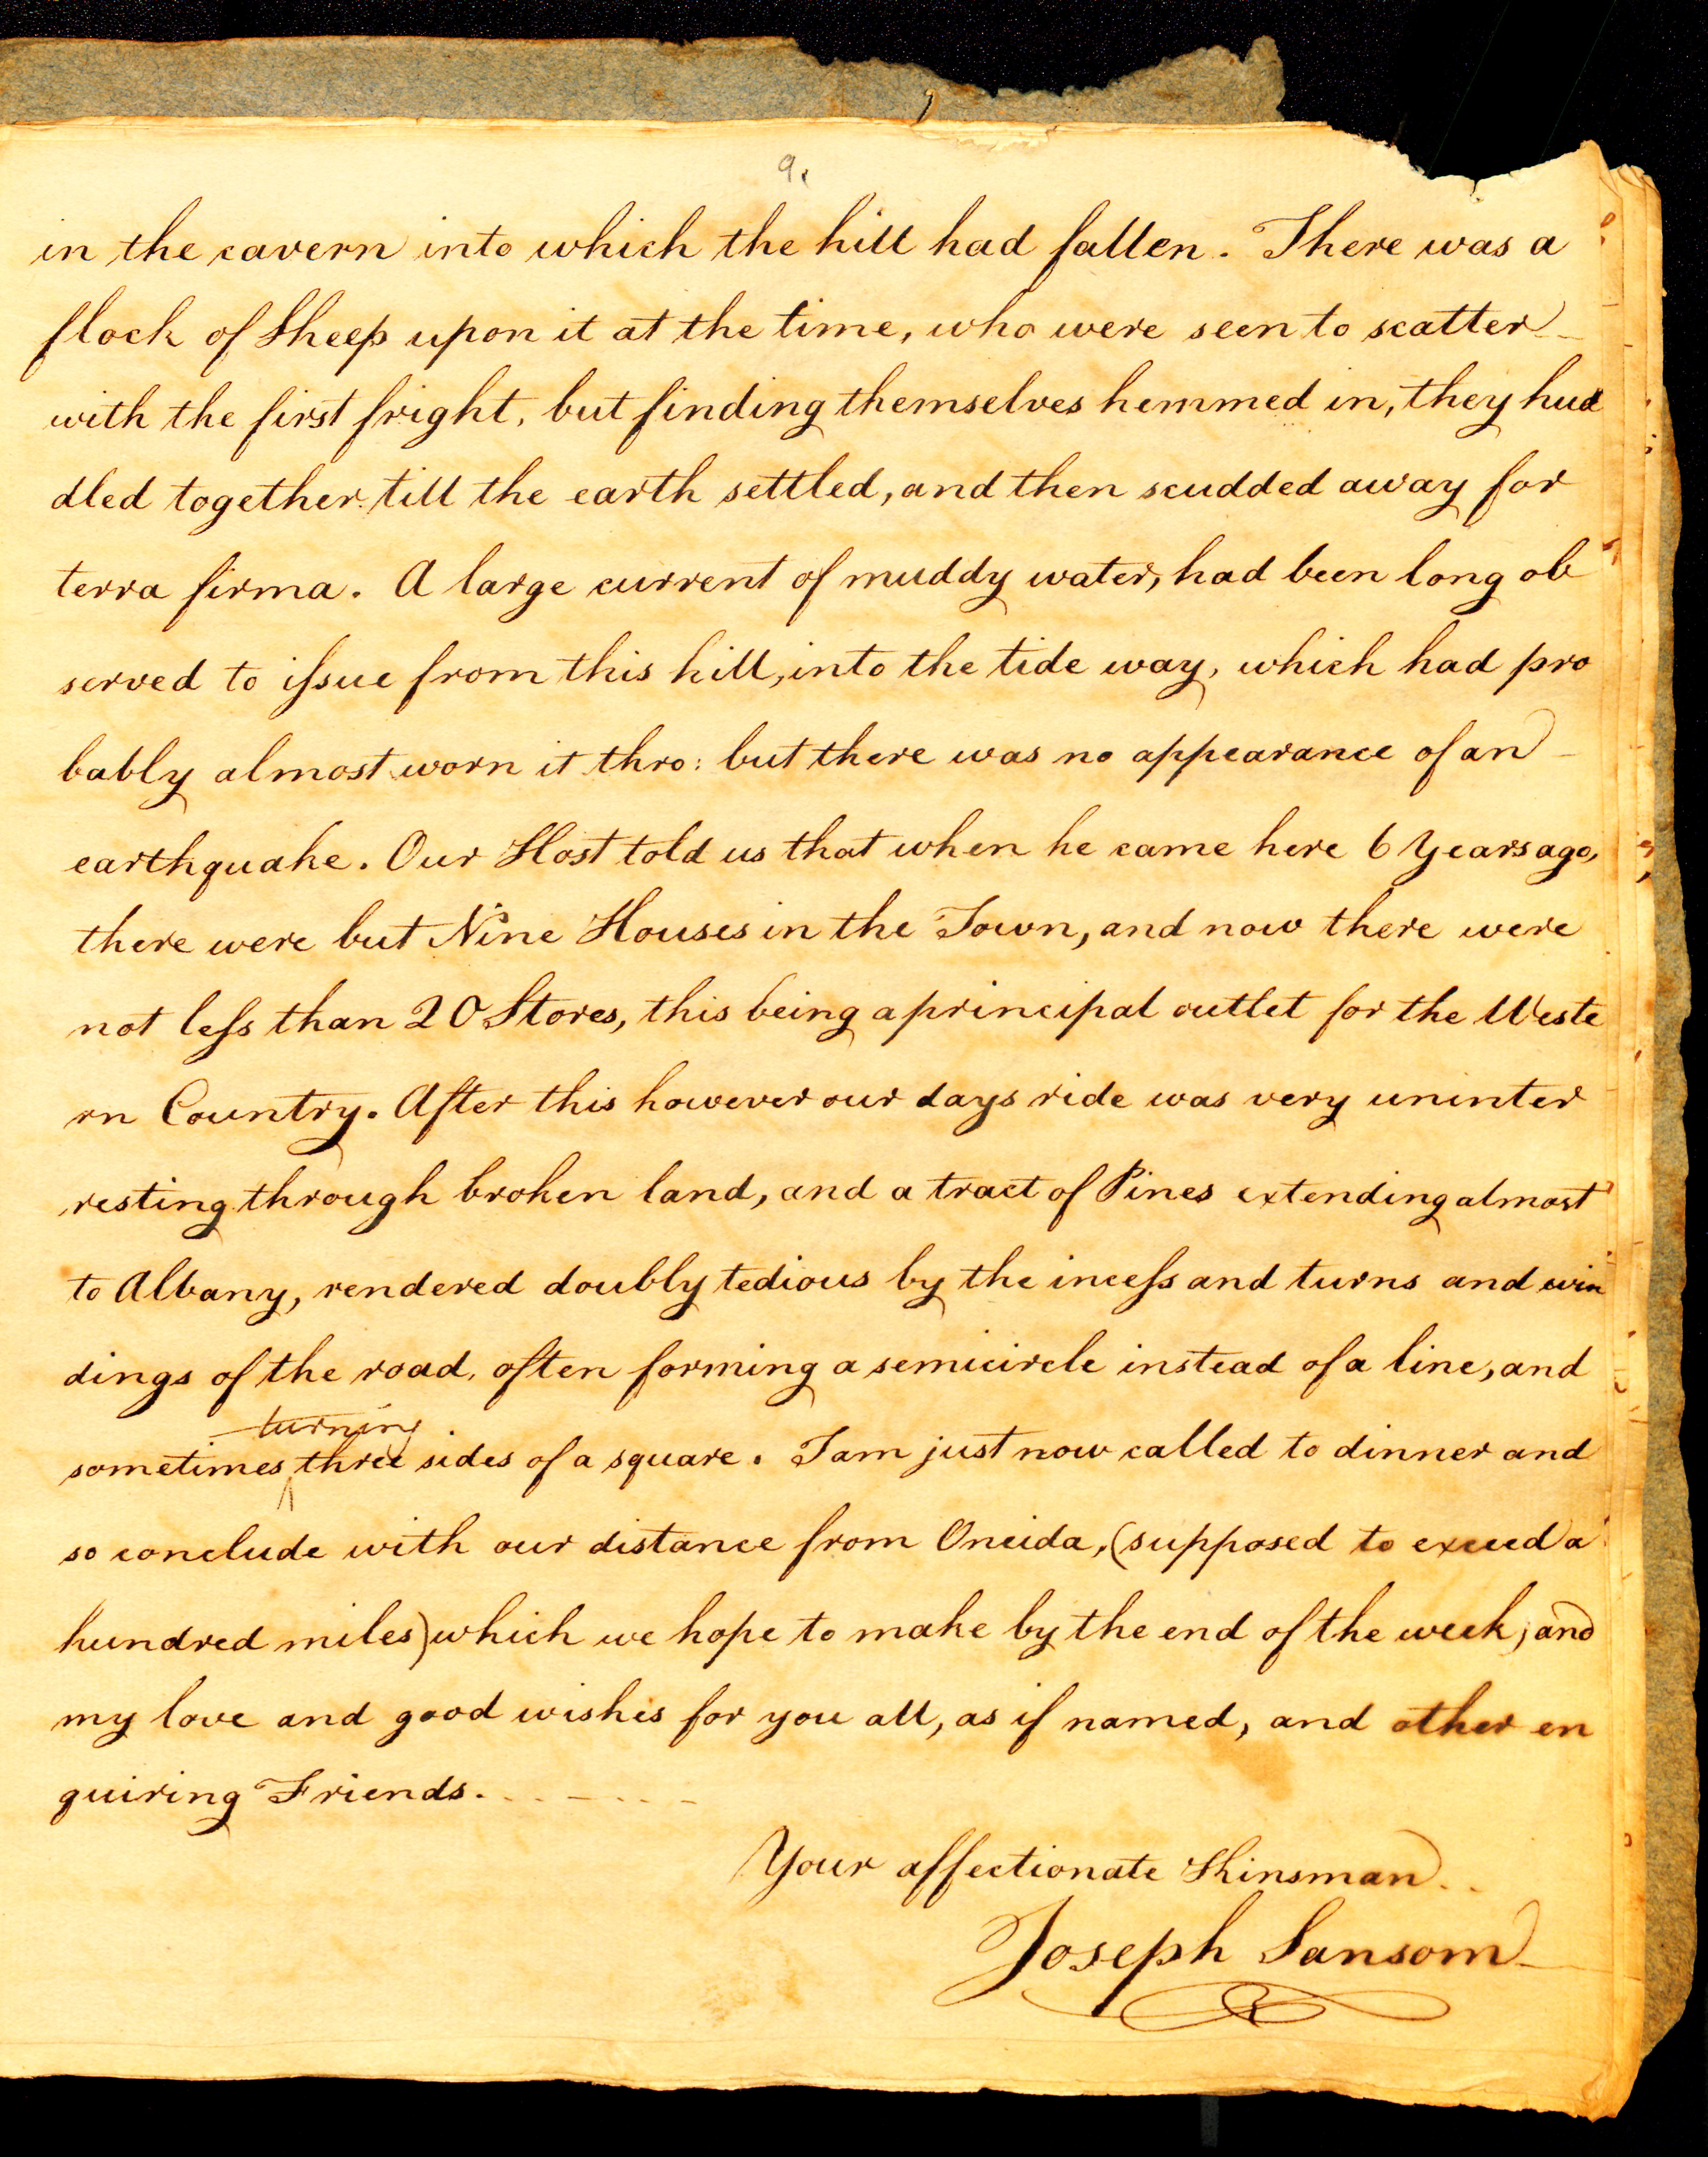 9.
in the cavern into which the hill had fallen. There was a
flock of Sheep upon it at the time, who were seen to scatter
with the first fright, but finding themselves hemmed in, they hud
dled together till the earth settled, and then scudded away for
terra firma. A large current of muddy water, had been long ob
served to ifsue from this hill, into the tide way, which had pro
bably almost worn it thro: but there was no appearance of an
earthquake. Our Host told us that when he came here 6 Years ago,
there were but Nine Houses in the Town, and now there were
not lefs than 20 Stores, this being a principal outlet for the Weste
rn Country. After this however our days ride was very uninter
resting through broken land, and a tract of Pines extending almost
to Albany, rendered doubly tedious by the incefsand turns and win
dings of the road, often forming a semicircle instead of a line, and
turning
sometimes three sides of a square. I am just now called to dinner and
so conclude with our distance from Oneida, (supposed to exceed a
hundred miles) which we hope to make by the end of the week; and
my love and good wishes for you all, as if named, and other en
quiring Friends.
Your affectionate Kinsman
Joseph Sansom